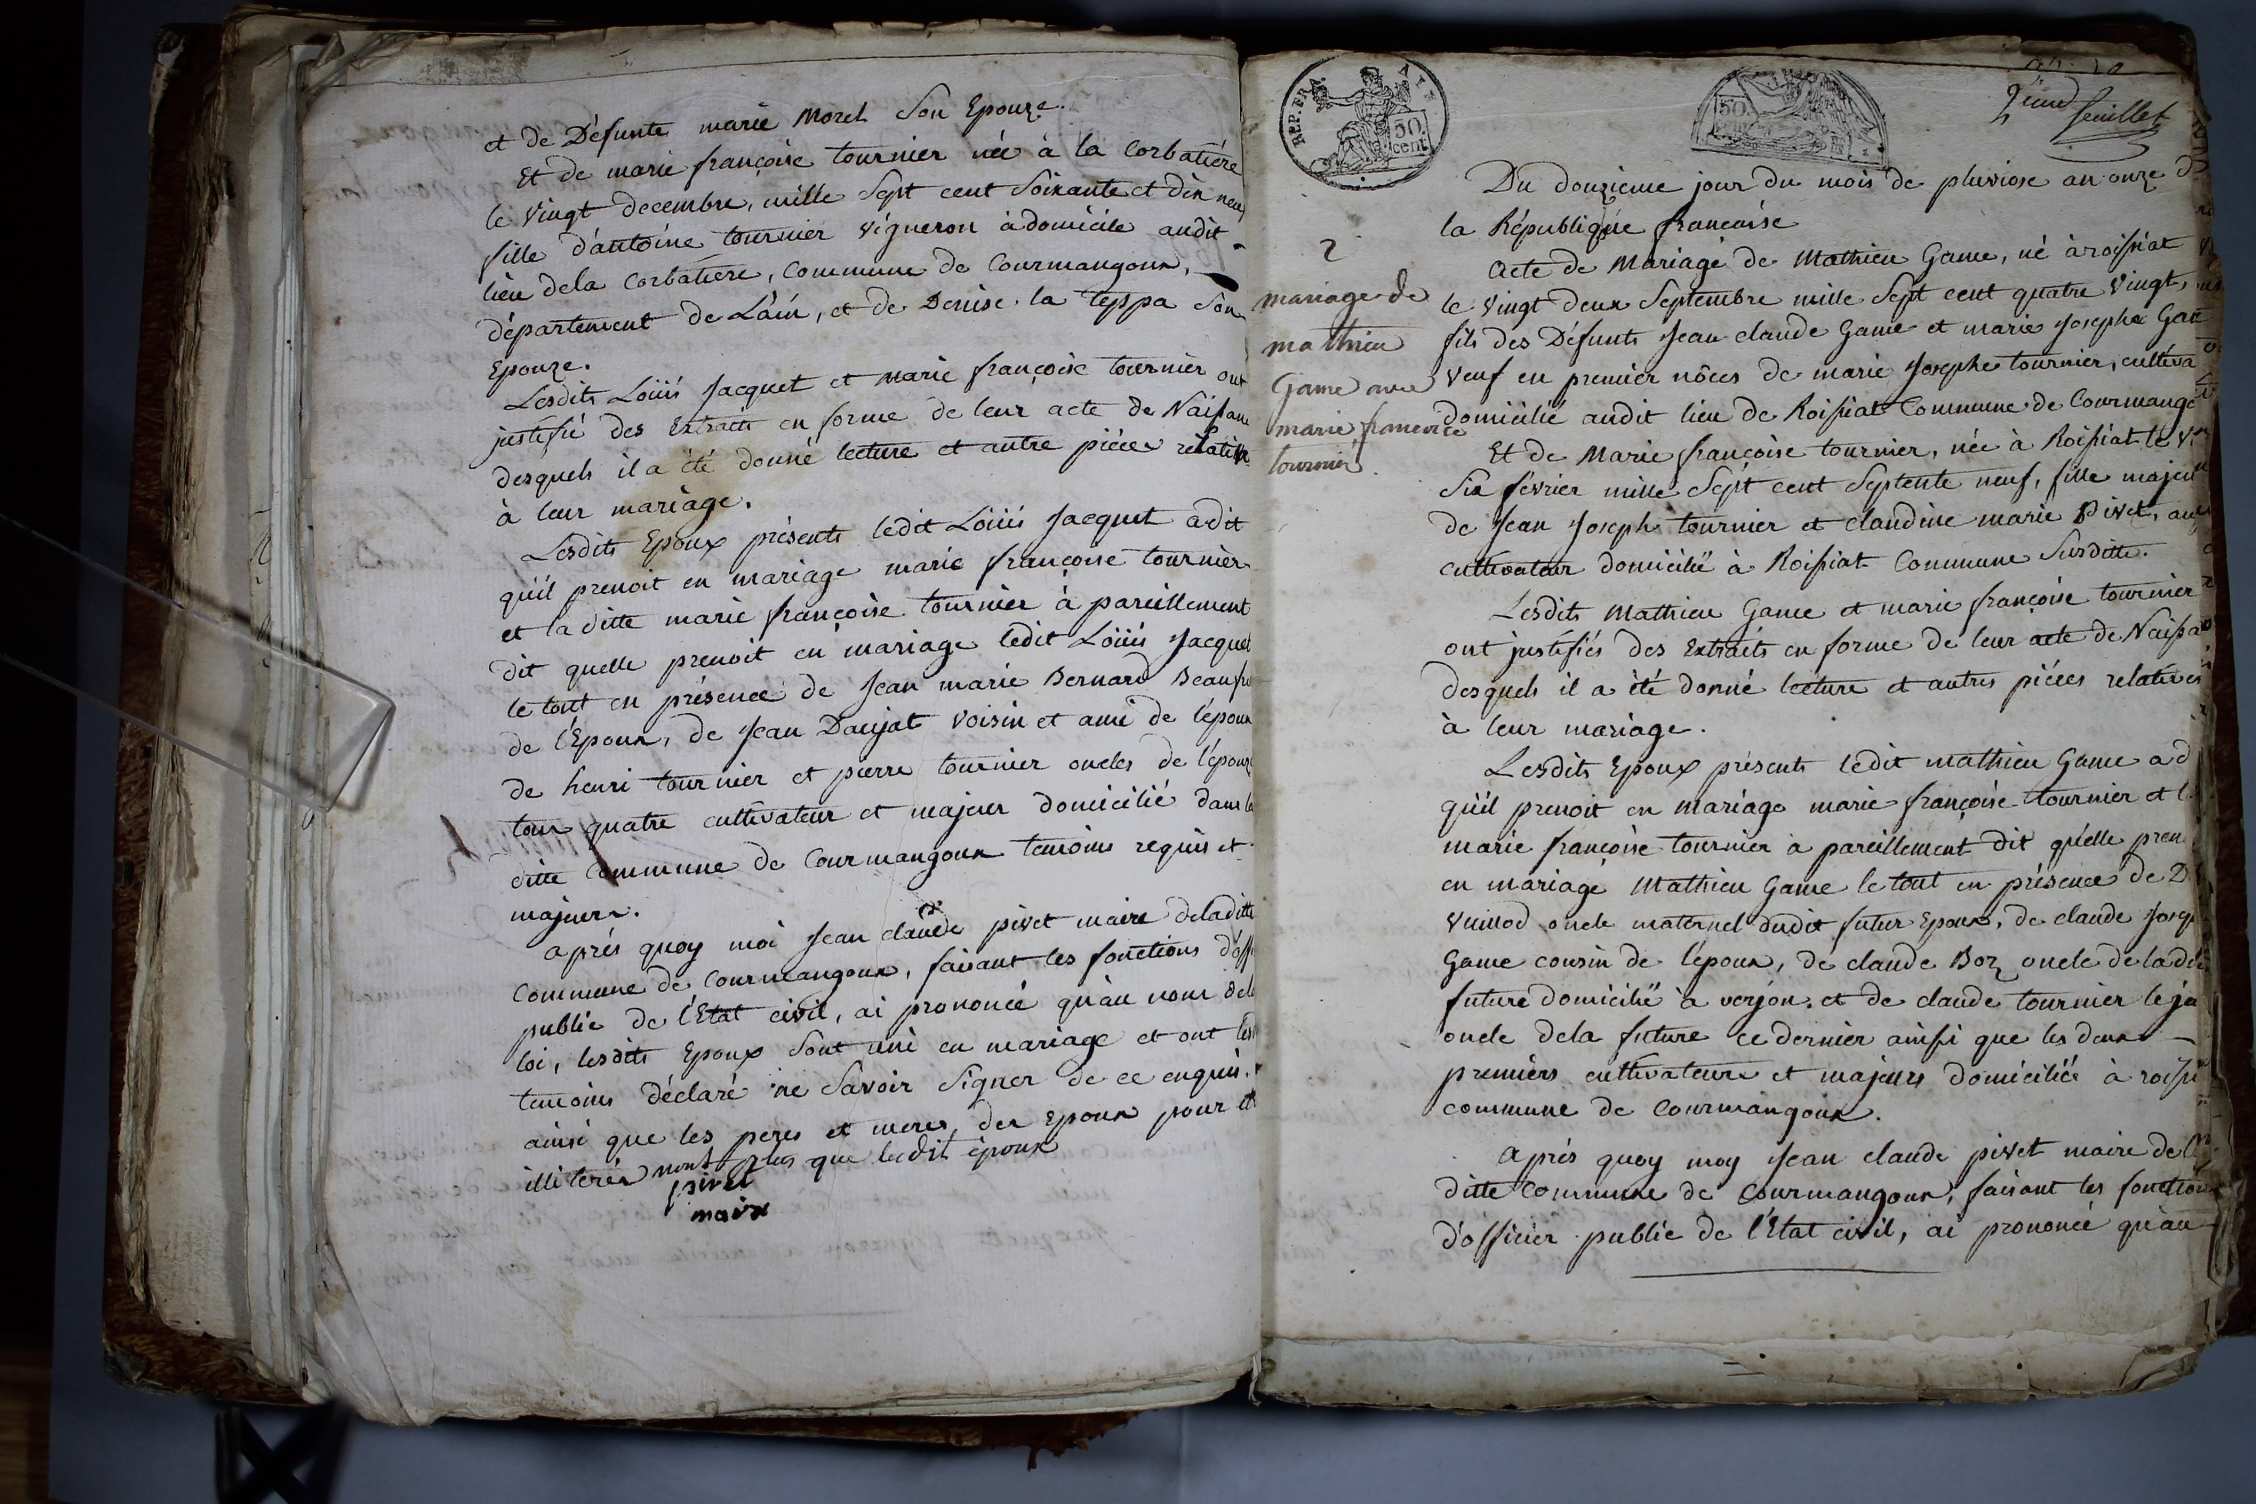 et de Défunte marie Morel Son Epouze.
Et de marie françoise tournier née à la Corbatiére
le Vingt decembre, mille Sept cent Soixante et dix neuf
fille d'antoine tournier vigneron à domicile audit
lieu dela Corbatiere, Commune de Courmangoux,
département de L'ain, et de Denise la teppa Son
Epouze.
Lesdits Löüis Jacquet et marie françoise tournier ont
justifié des Extraits en forme de leur acte de Naissance
desquels il a été donné lecture et autre piéces relative
à leur mariage.
Lesdits Epoux présents ledit Löüis Jacquet a dit
qu'il prenoit en mariage marie françoise tournier
et la ditte marie françoise tournier à pareillement
dit quelle prenoit en mariage ledit Löüis Jacquet
le tout en présence de Jean marie Bernard Beaufre
de l'Epoux, de Jean Daujat voisin et ami de l'epoux
de henri tournier et pierre tournier oncles de l'épouze
tous quatre cultivateur et majeur domicilié dans la
ditte Commune de Courmangoux temoins requis et
majeurs.
après quoy moi Jean claude pivet maire deladitte
Commune de Courmangoux, faisant les fonctions d'off
public de l'Etat civil, ai prononcé qu'au nom dela
loi, lesdits Epoux Sont uni en mariage et ont les
temoins déclaré ne Savoir Signer de ce enquis.
ainsi que les peres et meres des Epoux pour être
illiterés non plus que ledit époux
pivet
maire
2eme feuillet
REP. FRA.
50
cent
50.
Du douzième jour du mois de pluviose an onze de
la République francaise
2
mariage de
mathieu
Game avec
marie francoise
tournier.
Acte de Mariage de Mathieu Game, né à roissiat
le Vingt deux Septembre mille Sept cent quatre Vingt,
fils des Défunts Jean claude Game et marie Josephe Gau
veuf en premier nôces de marie Josephe tournier, cultiva
domicilié audit lieu de Roissiat Commune de Courmango
Et de Marie françoise tournier, née à Roissiat le V
Six février mille Sept cent Septente neuf, fille majeur
de Jean Joseph tournier et claudine marie Pivet, aus
cultivateur domicilié à Roissiat Commune Susditte.
Lesdits Mathieu Game et marie françoise tournier
ont justifiés des Extraits en forme de leur acte de Naissa
desquels il a été donné lecture et autres piéces relatives
à leur mariage.
Lesdits Epoux présents ledit mathieu Game a d
qu'il prenoit en mariage marie françoise tournier et l
marie françoise tournier a pareillement dit qu'elle pren
en mariage Mathieu Game le tout en présence de D
Vuillod oncle maternel dudit futur Epoux, de claude Josep
Game cousin de l'époux, de claude Boz oncle de ladite
future domicilié à verjon. et de claude tournier le jeu
oncle dela future ce dernier ainsi que les deux
premiers cultivateurs et majeurs domiciliés à roissi
commune de Courmangoux.
Après quoy moy Jean claude pivet maire de la
ditte Commune de Courmangoux, faisant les fonctions
d'officier public de l'Etat civil, ai prononcé qu'au